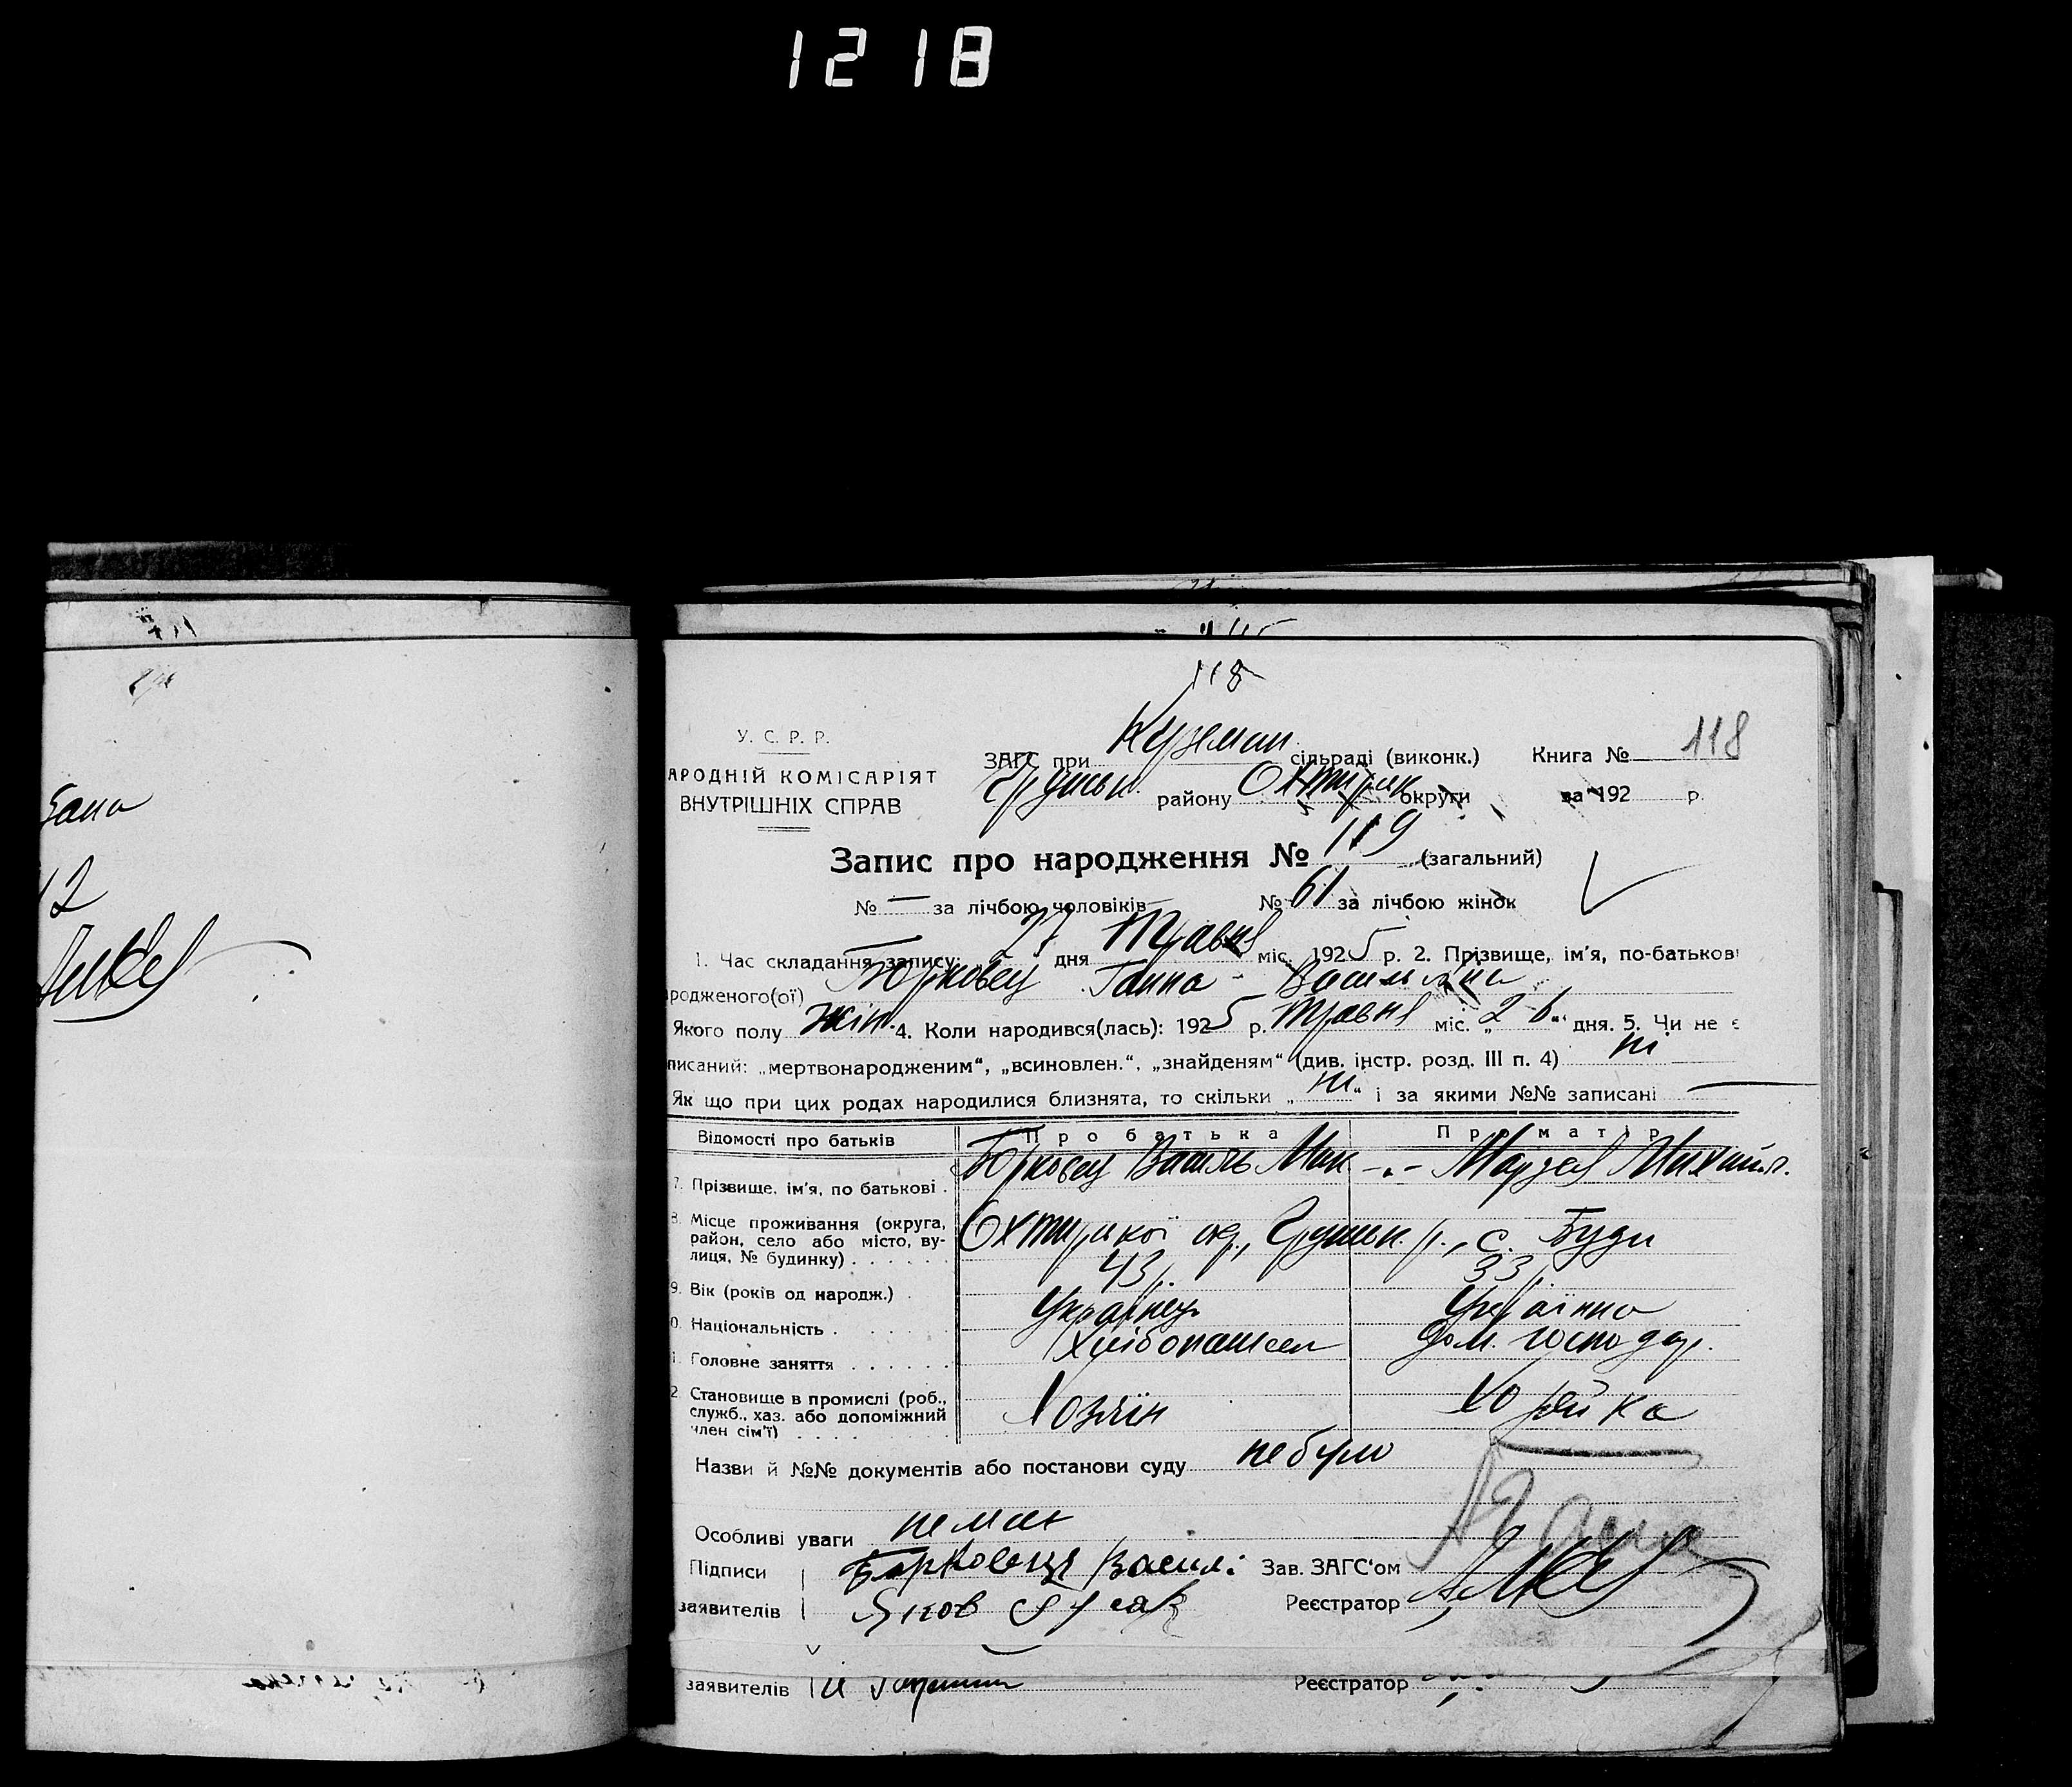 1218
118
У. С. Р. Р.
АРОДНІЙ КОМІСАРІЯТ
ВНУТРІШНІХ СПРАВ
ЗАГС при Куземин. сільраді (виконк.) Книга № 118
Грунськ. району Охтирск округи за 192 р.
Запис про народження № 119 (загальний)
№ — за лічбою чоловіків № 61 за лічбою жінок
1. Час складання запису: 27 дня Травня міс. 1925 р. 2. Прізвище, ім'я, по-батькові
родженого(ої) Борковец Ганна Васильевна
Якого полу жін. 4. Коли народився(лась): 1925 р. Травня міс. „26“ дня. 5. Чи не є
писаний: „мертвонародженим“, „всиновлен.“, „знайденям“ (див. інстр. розд. III п. 4) ні
Як що при цих родах народилися близнята, то скільки „ні“ і за якими №№ записані —
Відомості про батьків Про батька Про матір
7. Прізвище, ім'я, по батькові . Борковец Василь Мик. -„- Михайл.
8. Місце проживання (округа, район, село або місто, вулиця, № будинку) . . . . . . Охтирскої окр., Грунськ. р., с. Буди
9. Вік (років од народж.) . 43 р. 33 р.
0. Національність . . . . . . Українець Українка
1. Головне заняття . . . . . . Хлібопашец дом. господар.
2. Становище в промислі (роб., служб., хаз. або допоміжний член сім'ї) . . . . Хозяїн Хозяйка
Назви й №№ документів або постанови суду не було
Особливі уваги немає
Підписи Борковець Васил: Зав. ЗАГС'ом
заявителів Яков Реєстратор
заявителів Реєстратор